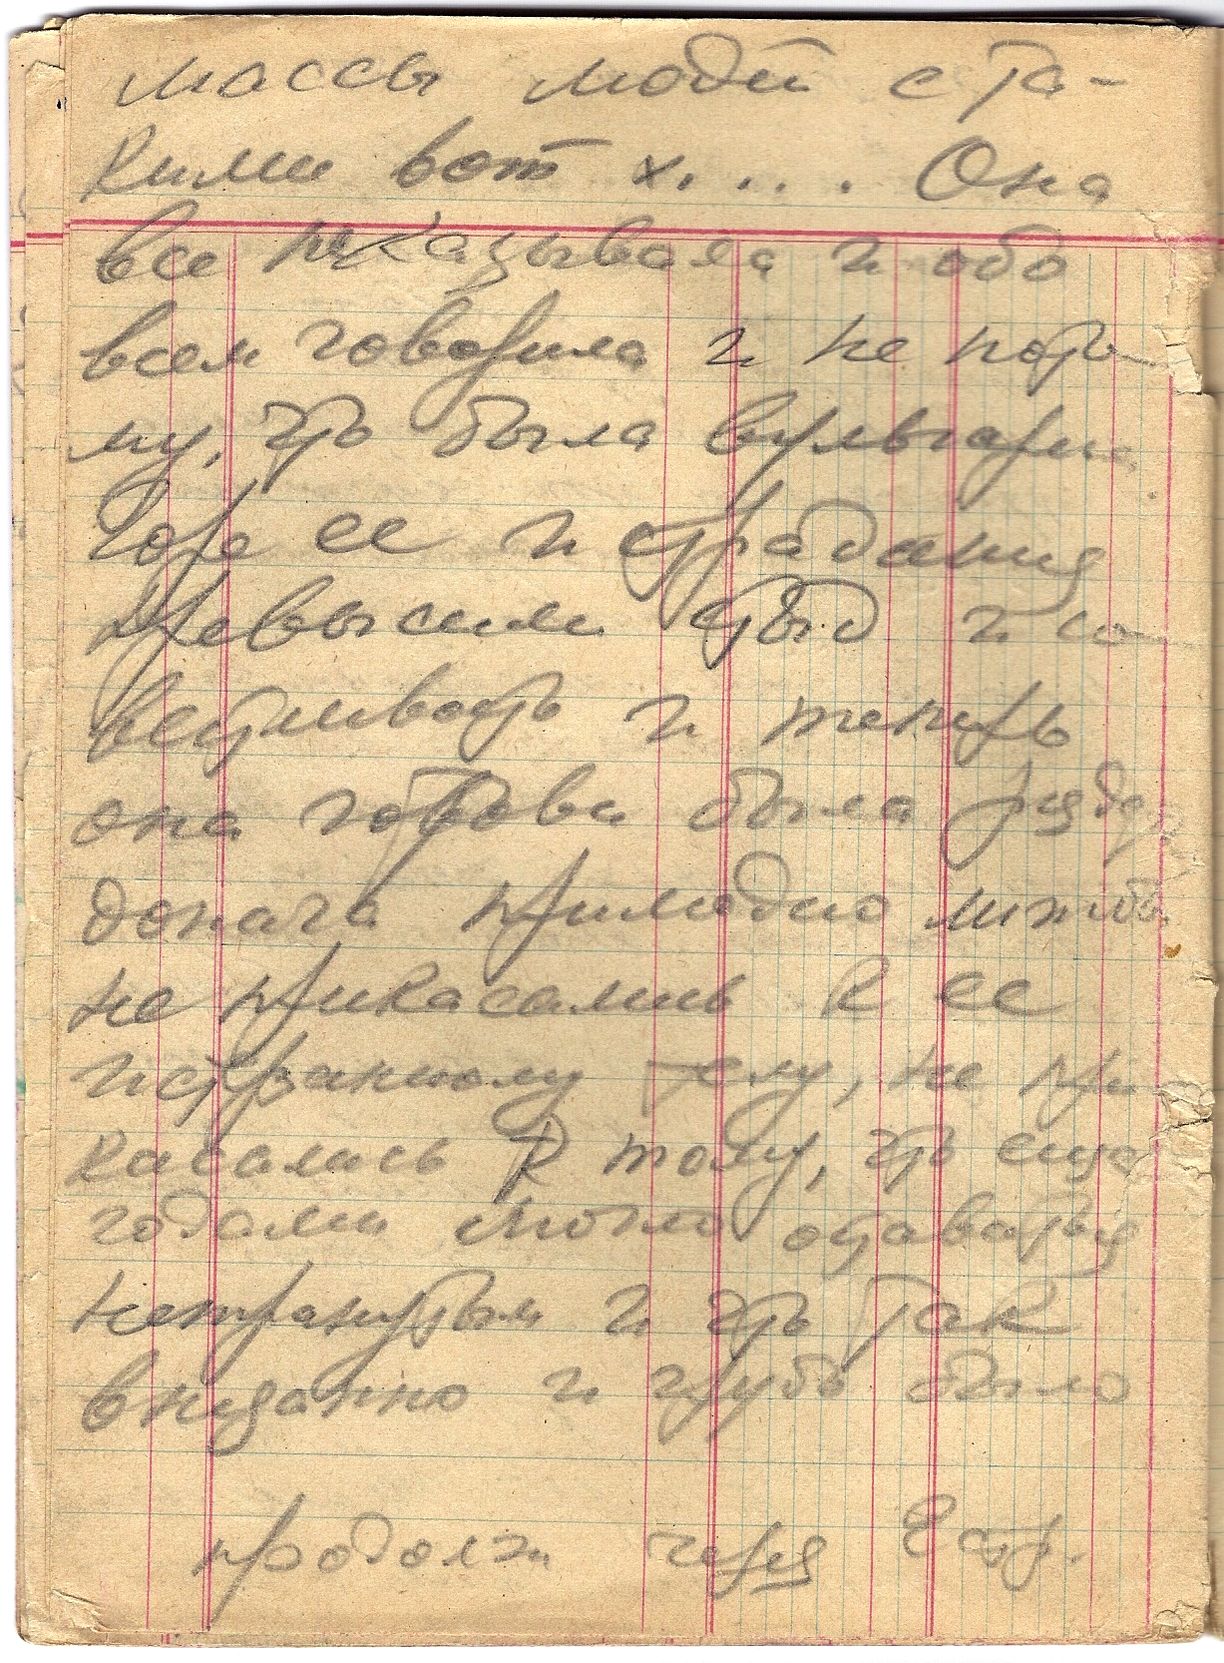 массы людей с та-
кими вот х.... Она
все показывала и обо
всем говорила и не пото-
му, что была вульгарна
Горе ее и страдания
превысили стыд и со-
вестливость и теперь
она готова была разде
донага прилюдно лишь бы
не прикасались к ее
истерзанному телу, не при
касались к тому, что еще
годами могло оставаться
нетронутым и что так
внезапно и грубо было
продолж через 2 стр.